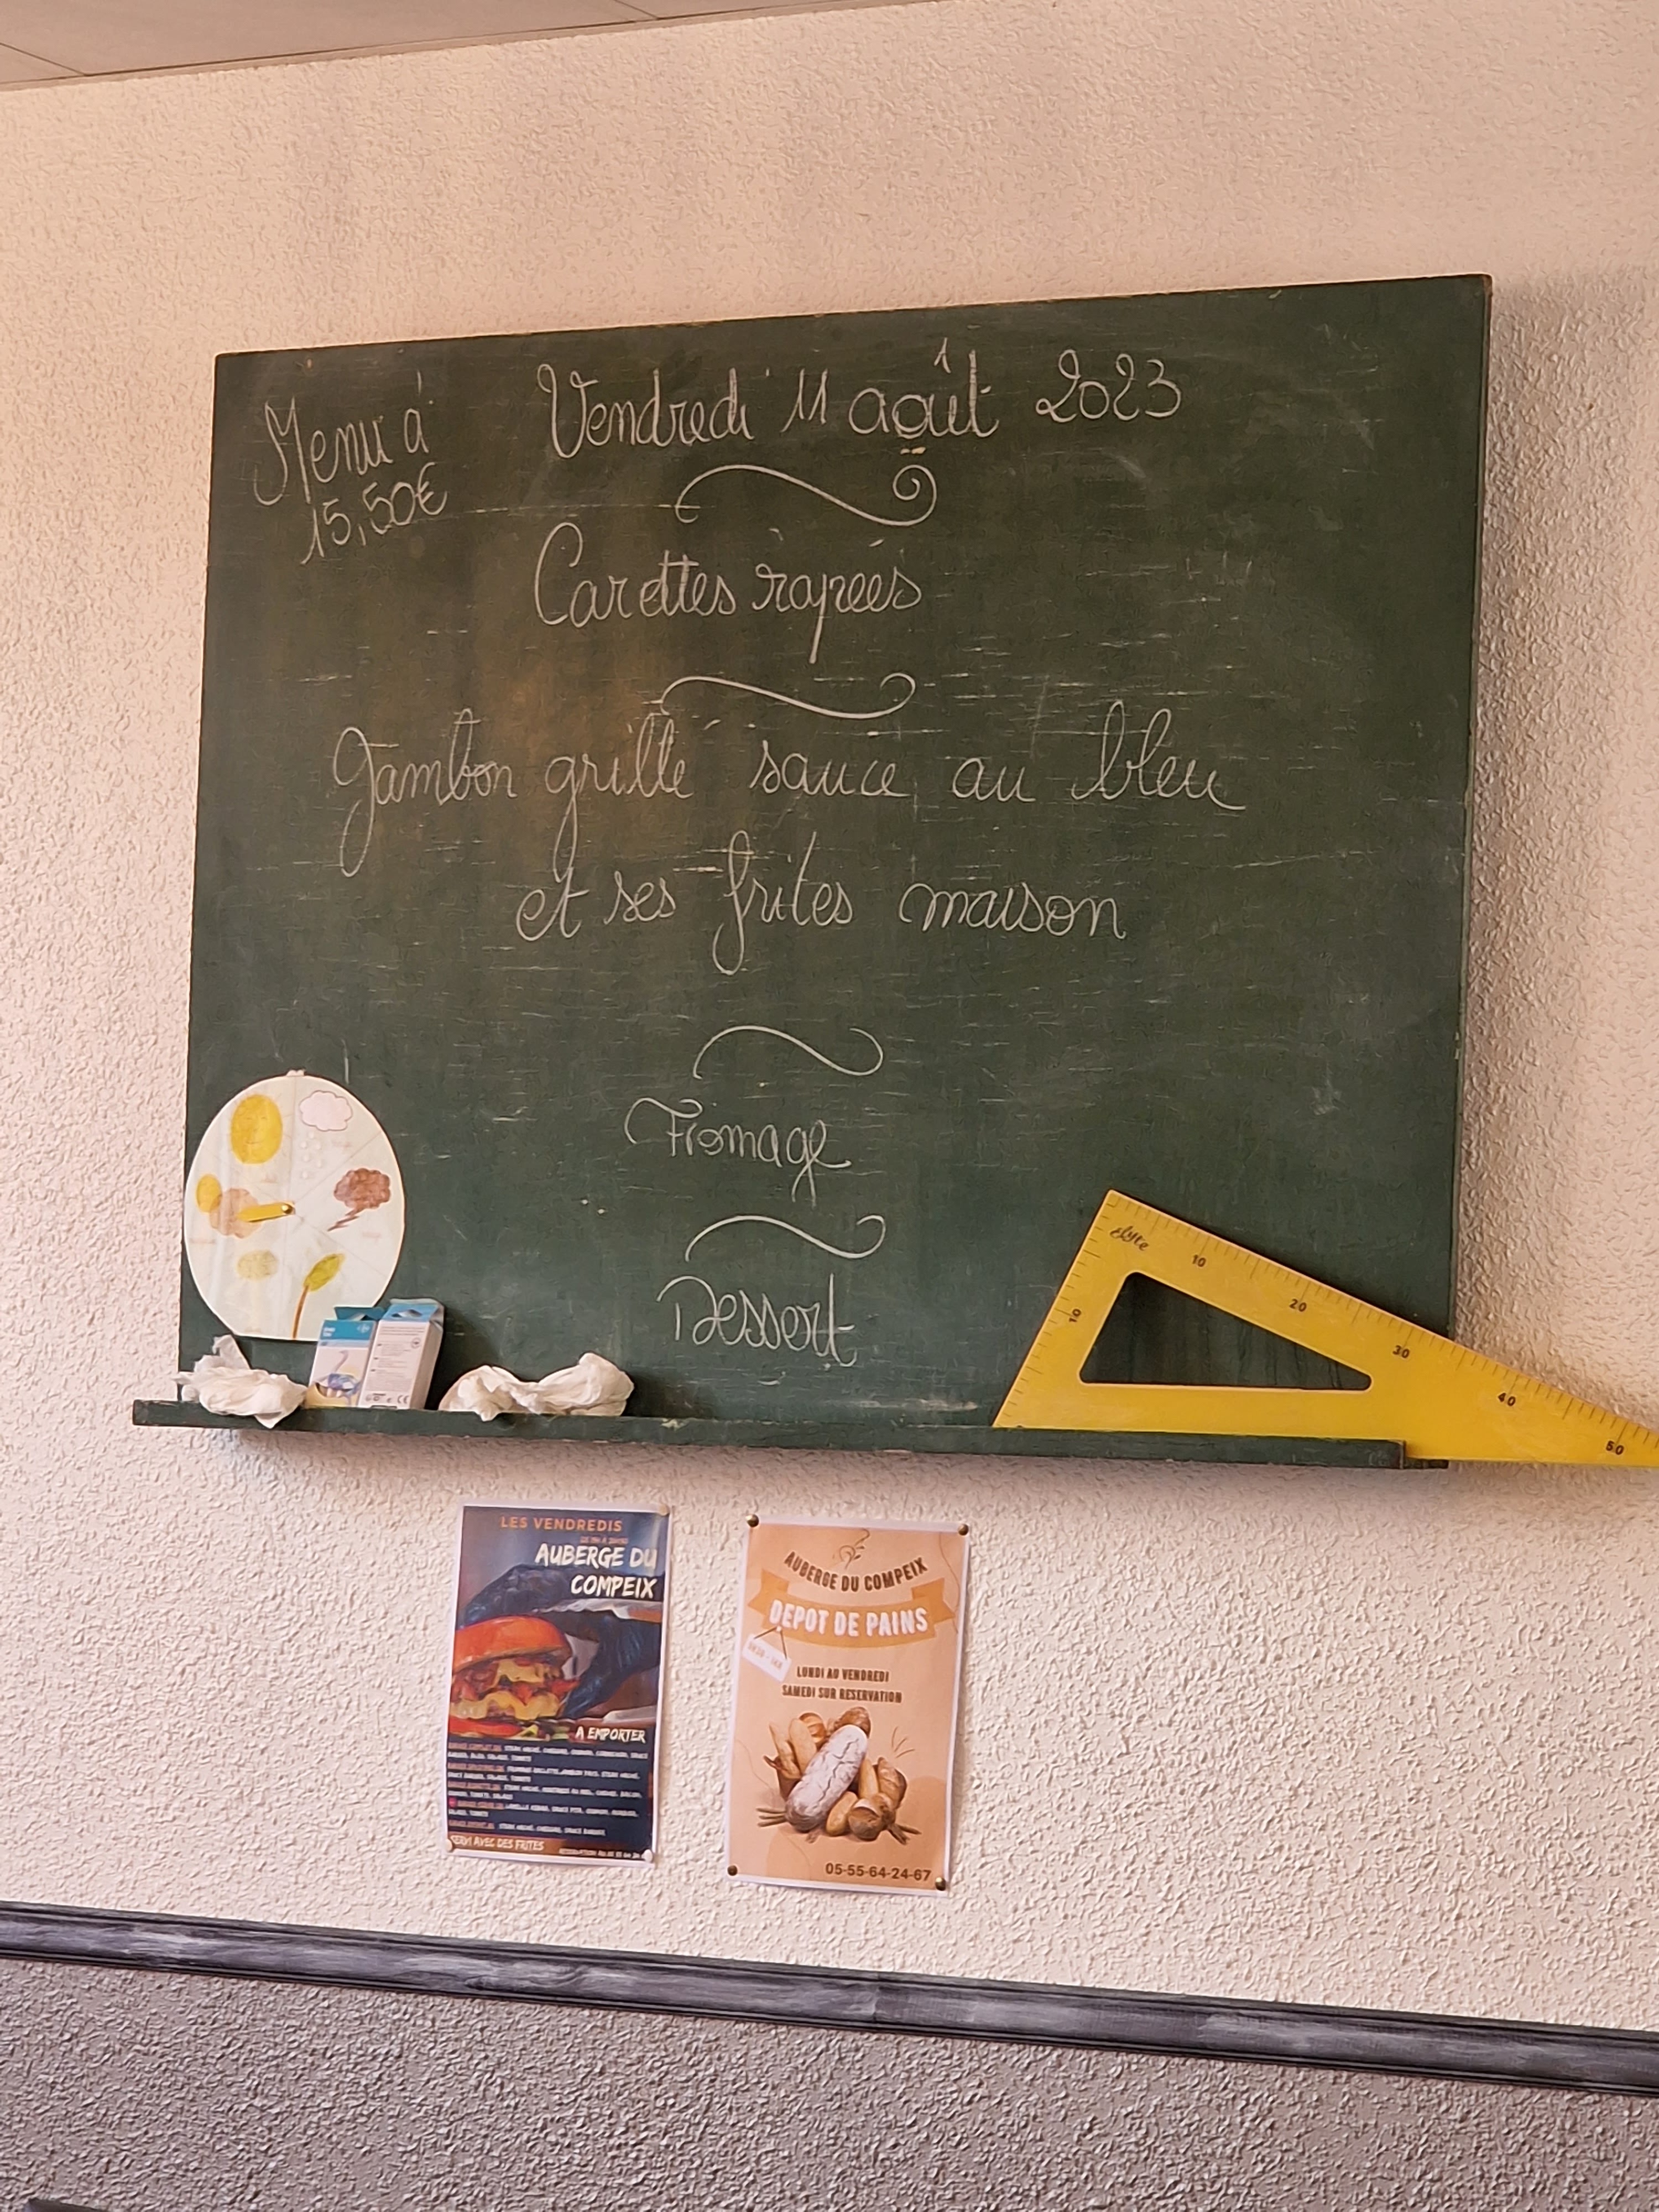 Menu à
15,50€
Vendredi 11 août 2023
Carottes rapées
Jambon grillé sauce au bleu
et ses frites maison
Fromage
Dessert
10
10
20
30
40
50
LES VENDREDIS
AUBERGE DU
COMPEIX
A EMPORTER
SERVI AVEC DES FRITES
AUBERGE DU COMPEIX
DEPOT DE PAINS
LUNDI AU VENDREDI
SAMEDI SUR RESERVATION
05-55-64-24-67